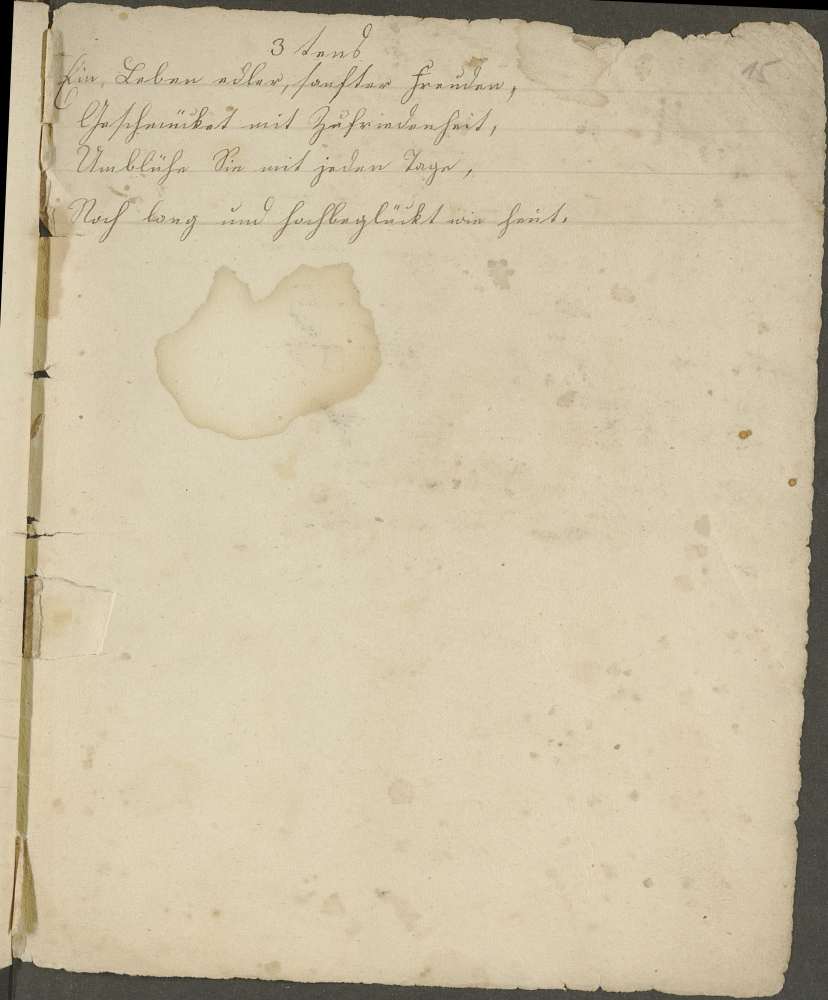 3 tens
15
Ein Leben edler, sanfter Freuden,
Geschmücket mit Zufriedenheit,
Umblühe Sie mit jeden Tage,
Noch lang und hochbeglückt wie heut.